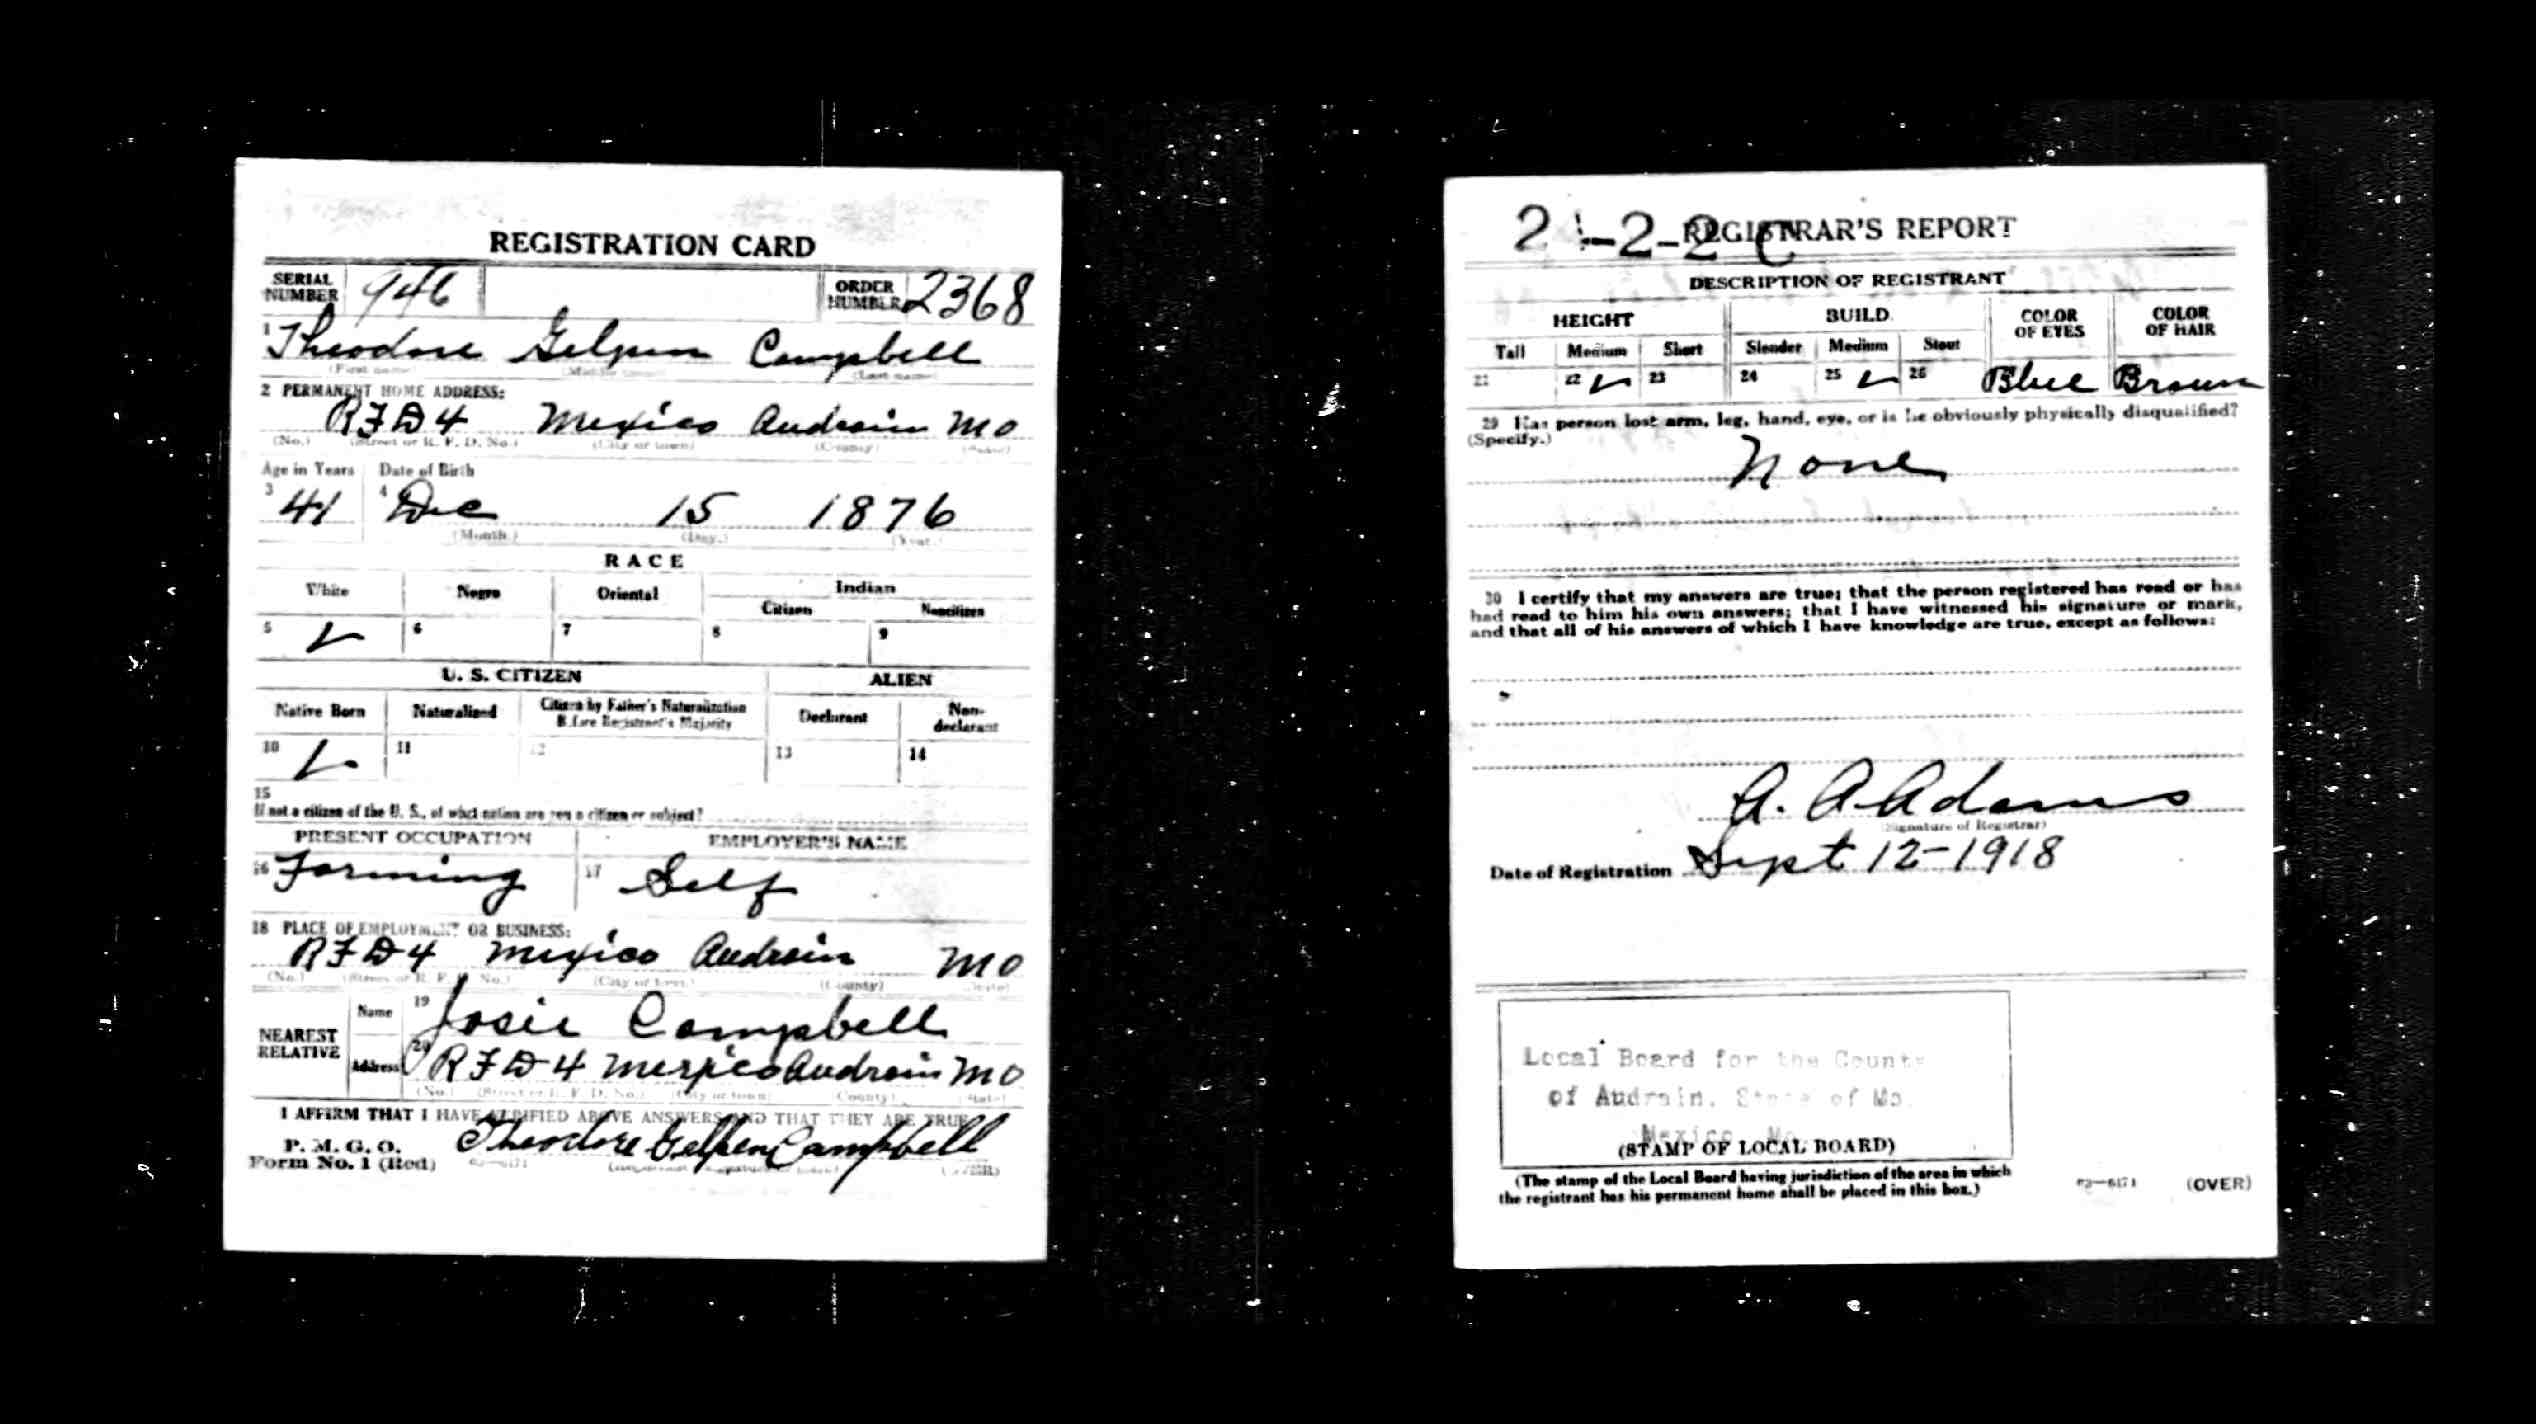 REGISTRATION CARD
SERIAL NUMBER 946 ORDER NUMBER 2368
1 Theodore Gelpen Campbell
(First name) (Middle name) (Last name)
2 PERMANENT HOME ADDRESS:
RFD 4 Mexico Audrain Mo
(No.) (Street or R. F. D. No.) (City or town) (County) (State)
Age in Years Date of Birth
3 41 4 Dec 15 1876
(Month.) (Day.) (Year.)
RACE
White Negro Oriental Indian
Citizen Noncitizen
5 ✓ 6 7 8 9
U. S. CITIZEN ALIEN
Native Born Naturalized Citizen by Father's Naturalization Before Registrant's Majority Declarant Non-declarant
10 ✓ 11 12 13 14
15
If not a citizen of the U. S., of what nation are you a citizen or subject?
PRESENT OCCUPATION EMPLOYER'S NAME
16 Farming 17 Self
18 PLACE OF EMPLOYMENT OR BUSINESS:
RFD 4 Mexico Audrain Mo
(No.) (Street or R. F. D. No.) (City or town) (County) (State)
NEAREST RELATIVE
Name 19 Josie Campbell
Address 20 RFD 4 Mexico Audrain Mo
(No.) (Street or R. F. D. No.) (City or town) (County) (State)
I AFFIRM THAT I HAVE VERIFIED ABOVE ANSWERS AND THAT THEY ARE TRUE
P. M. G. O.
Form No. 1 (Red) Theodore Gelpen Campbell
2 1-2-2 C REGISTRAR'S REPORT
DESCRIPTION OF REGISTRANT
HEIGHT BUILD COLOR OF EYES COLOR OF HAIR
Tall Medium Short Slender Medium Stout
21 22 ✓ 23 24 25 ✓ 26 Blue Brown
29 Has person lost arm, leg, hand, eye, or is he obviously physically disqualified?
(Specify.)
None
30 I certify that my answers are true; that the person registered has read or has
had read to him his own answers; that I have witnessed his signature or mark,
and that all of his answers of which I have knowledge are true, except as follows:
A. A. Adams
(Signature of Registrar)
Date of Registration Sept 12-1918
Local Board for the County
of Audrain. State of Mo.
Mexico, Mo.
(STAMP OF LOCAL BOARD)
(The stamp of the Local Board having jurisdiction of the area in which
the registrant has his permanent home shall be placed in this box.)
03-6171 (OVER)